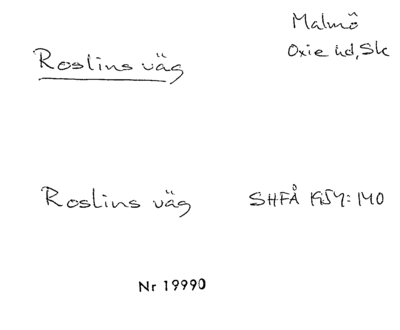 Roslins väg
Malmö
Oxie hd, Sk
Roslins väg SHFÅ 1957:140
Nr 19990